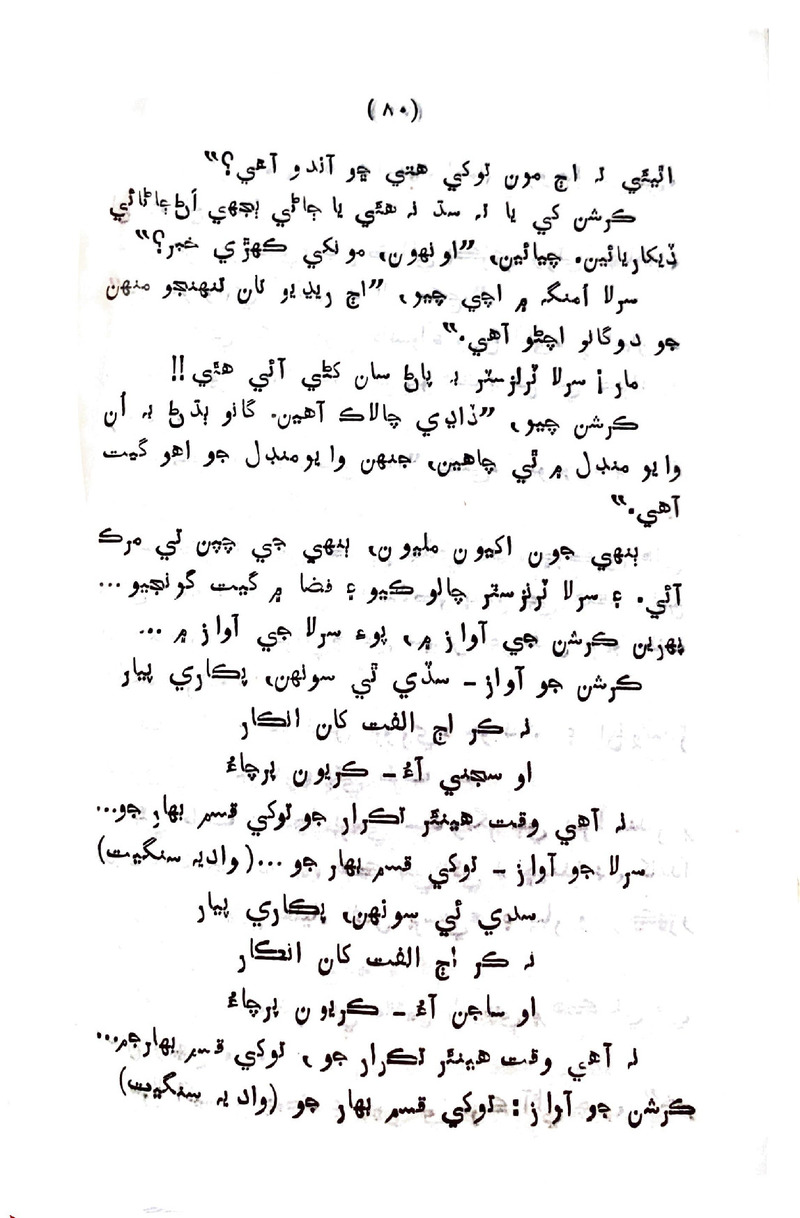 (۸۰)
اٿيئي تہ اڄ مون توکي هتي ڇو آندو آهي؟"
ڪرشن کي يا تہ سڌ نہ هئي يا ڄاڻي ٻجهي اُڻڄاڻائي
ڏيکاريائين. چيائين، "اونهون، مونکي ڪهڙي خبر؟"
سرلا اُمنگہ ۾ اچي چيو، "اڄ ريڊيو تان تنهنجو منهن
جو دوگانو اچڻو آهي."
مار! سرلا ٽرانزسٽر بہ پاڻ سان کڻي آئي هئي!!
ڪرشن چيو، "ڏاڍي چالاڪ آهين. گانو ٻڌڻ بہ اُن
وايو منڊل ۾ ٿي چاهين، جنهن وايومنڊل جو اهو گيت
آهي."
ٻنهي جون اکيون مليون، ٻنهي جي چپن تي مرڪ
آئي. ۽ سرلا ٽرانزسٽر چالو ڪيو ۽ فضا ۾ گيت گونجيو...
پهرين ڪرشن جي آواز ۾، پوءِ سرلا جي آواز ۾ ...
ڪرشن جو آواز - سڏي ٿي سونهن، پڪاري پيار
نہ ڪر اڄ الفت کان انڪار
او سجني آءُ - ڪريون پرچاءُ
نہ آهي وقت هينئر تڪرار جو توکي قسم بهار جو...
سرلا جو آواز - توکي قسم بهار جو ...(واديہ سنگيت)
سڏي ٿي سونهن، پڪاري پيار
نہ ڪر اڄ الفت کان انڪار
او ساجن آءُ - ڪريون پرچاءُ
نہ آهي وقت هينئر تڪرار جو، توکي قسم بهارجو...
ڪرشن جو آواز: توکي قسم بهار جو (واديہ سنگيت)